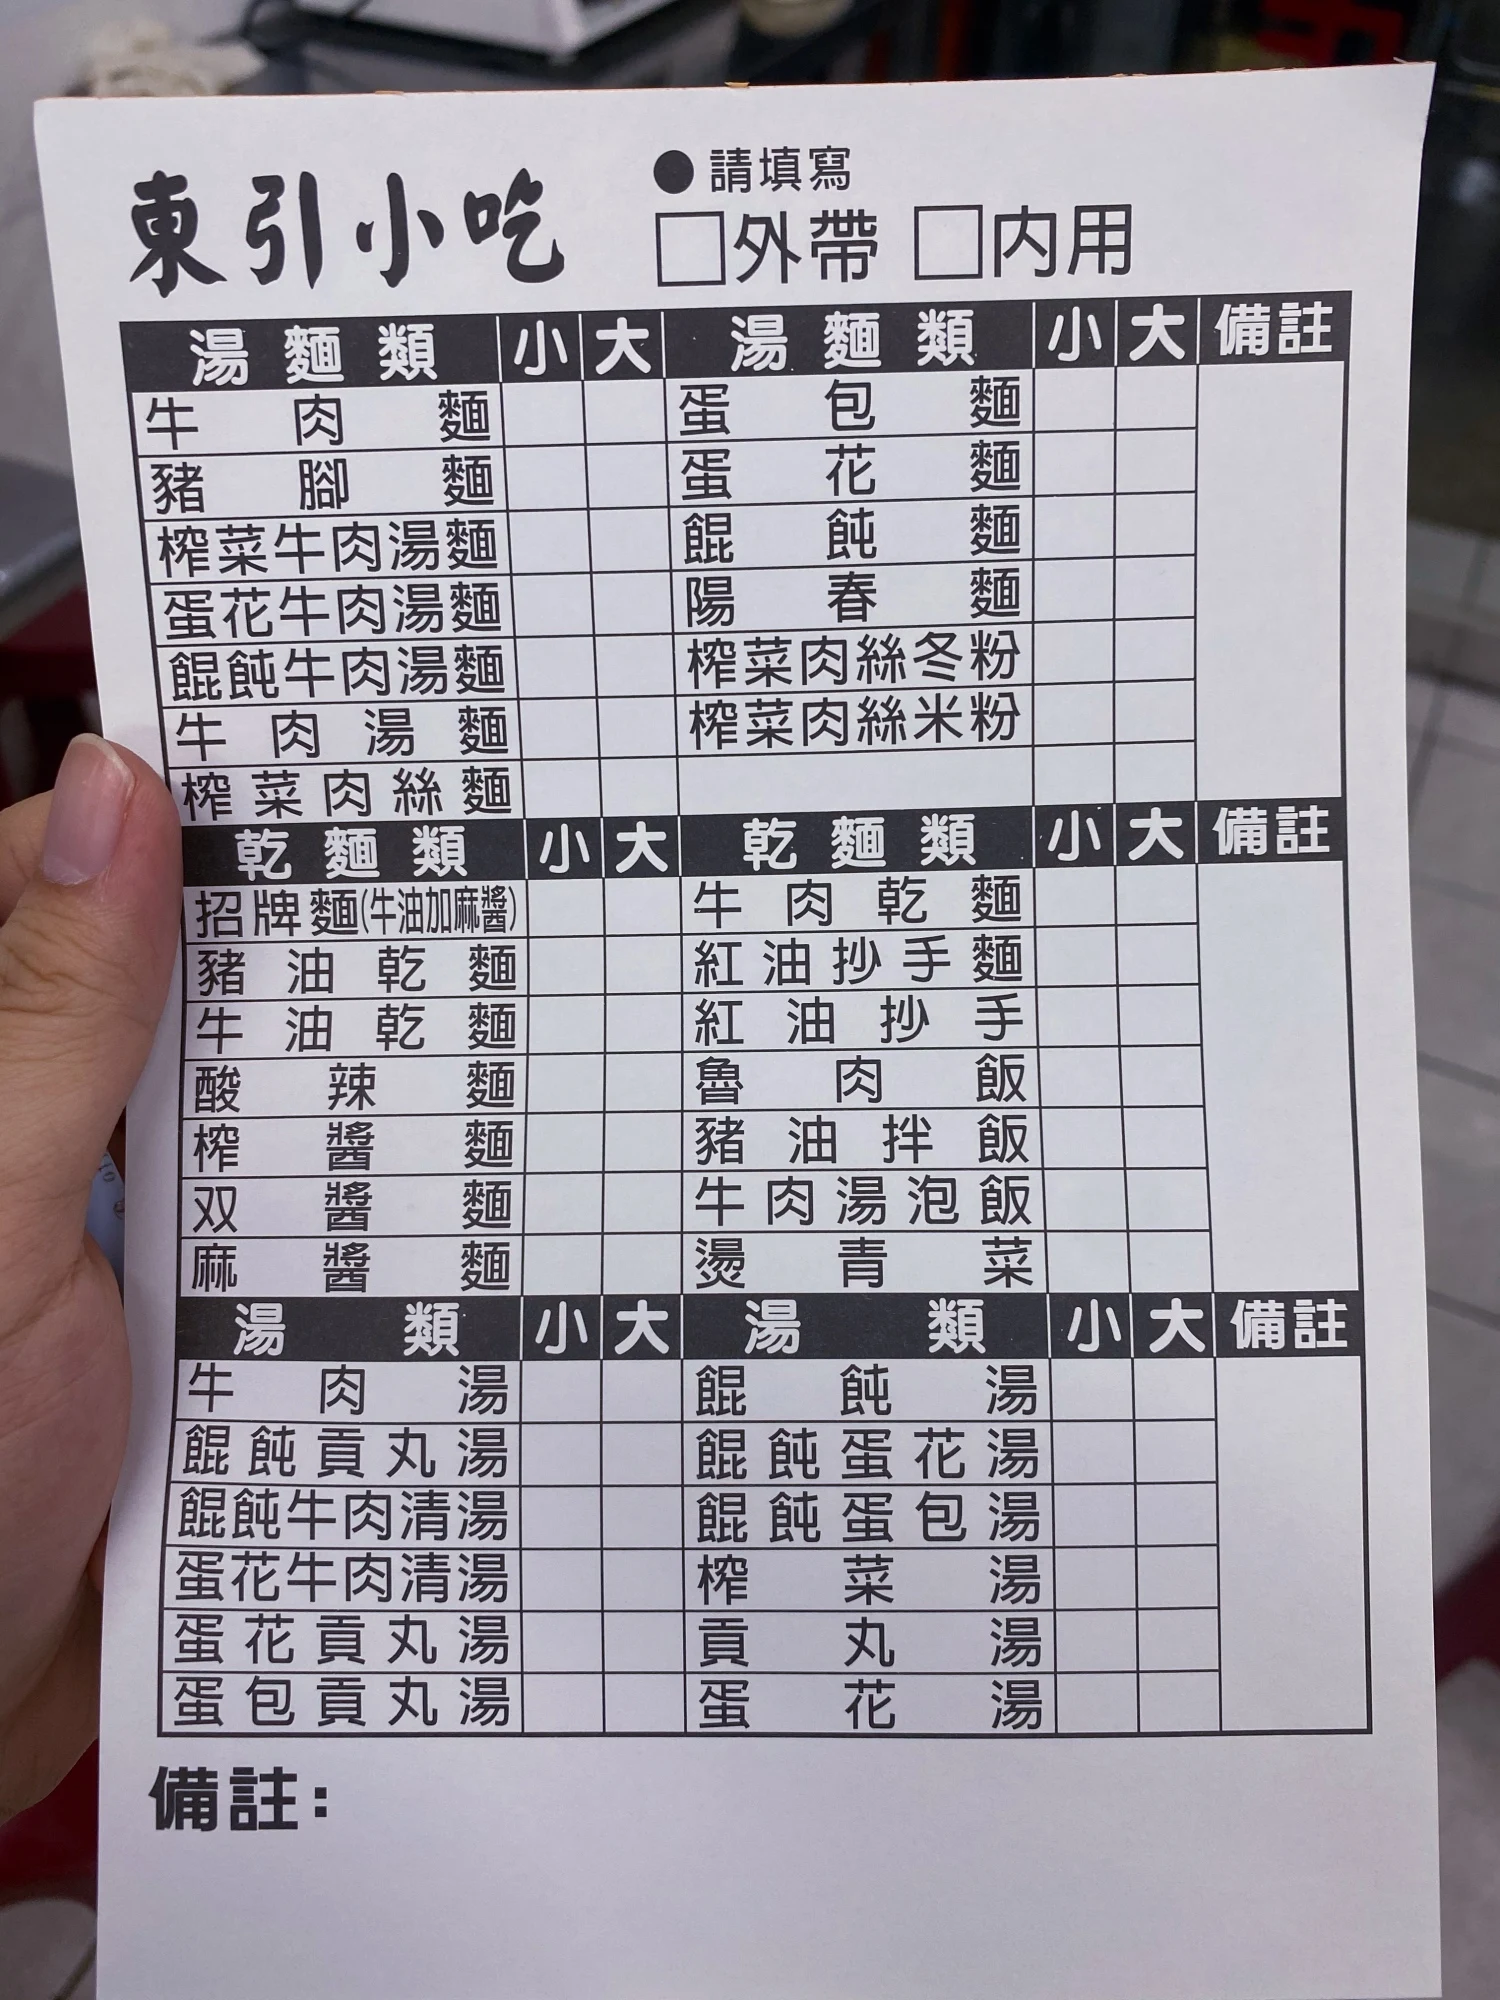 東引小吃
●請填寫
□外帶 □內用
湯麵類 小 大 湯麵類 小 大 備註
牛肉麵 蛋包麵
豬腳麵 蛋花麵
榨菜牛肉湯麵 餛飩麵
蛋花牛肉湯麵 陽春麵
餛飩牛肉湯麵 榨菜肉絲冬粉
牛肉湯麵 榨菜肉絲米粉
榨菜肉絲麵
乾麵類 小 大 乾麵類 小 大 備註
招牌麵(牛油加麻醬) 牛肉乾麵
豬油乾麵 紅油抄手麵
牛油乾麵 紅油抄手
酸辣麵 魯肉飯
榨醬麵 豬油拌飯
双醬麵 牛肉湯泡飯
麻醬麵 燙青菜
湯類 小 大 湯類 小 大 備註
牛肉湯 餛飩湯
餛飩貢丸湯 餛飩蛋花湯
餛飩牛肉清湯 餛飩蛋包湯
蛋花牛肉清湯 榨菜湯
蛋花貢丸湯 貢丸湯
蛋包貢丸湯 蛋花湯
備註: